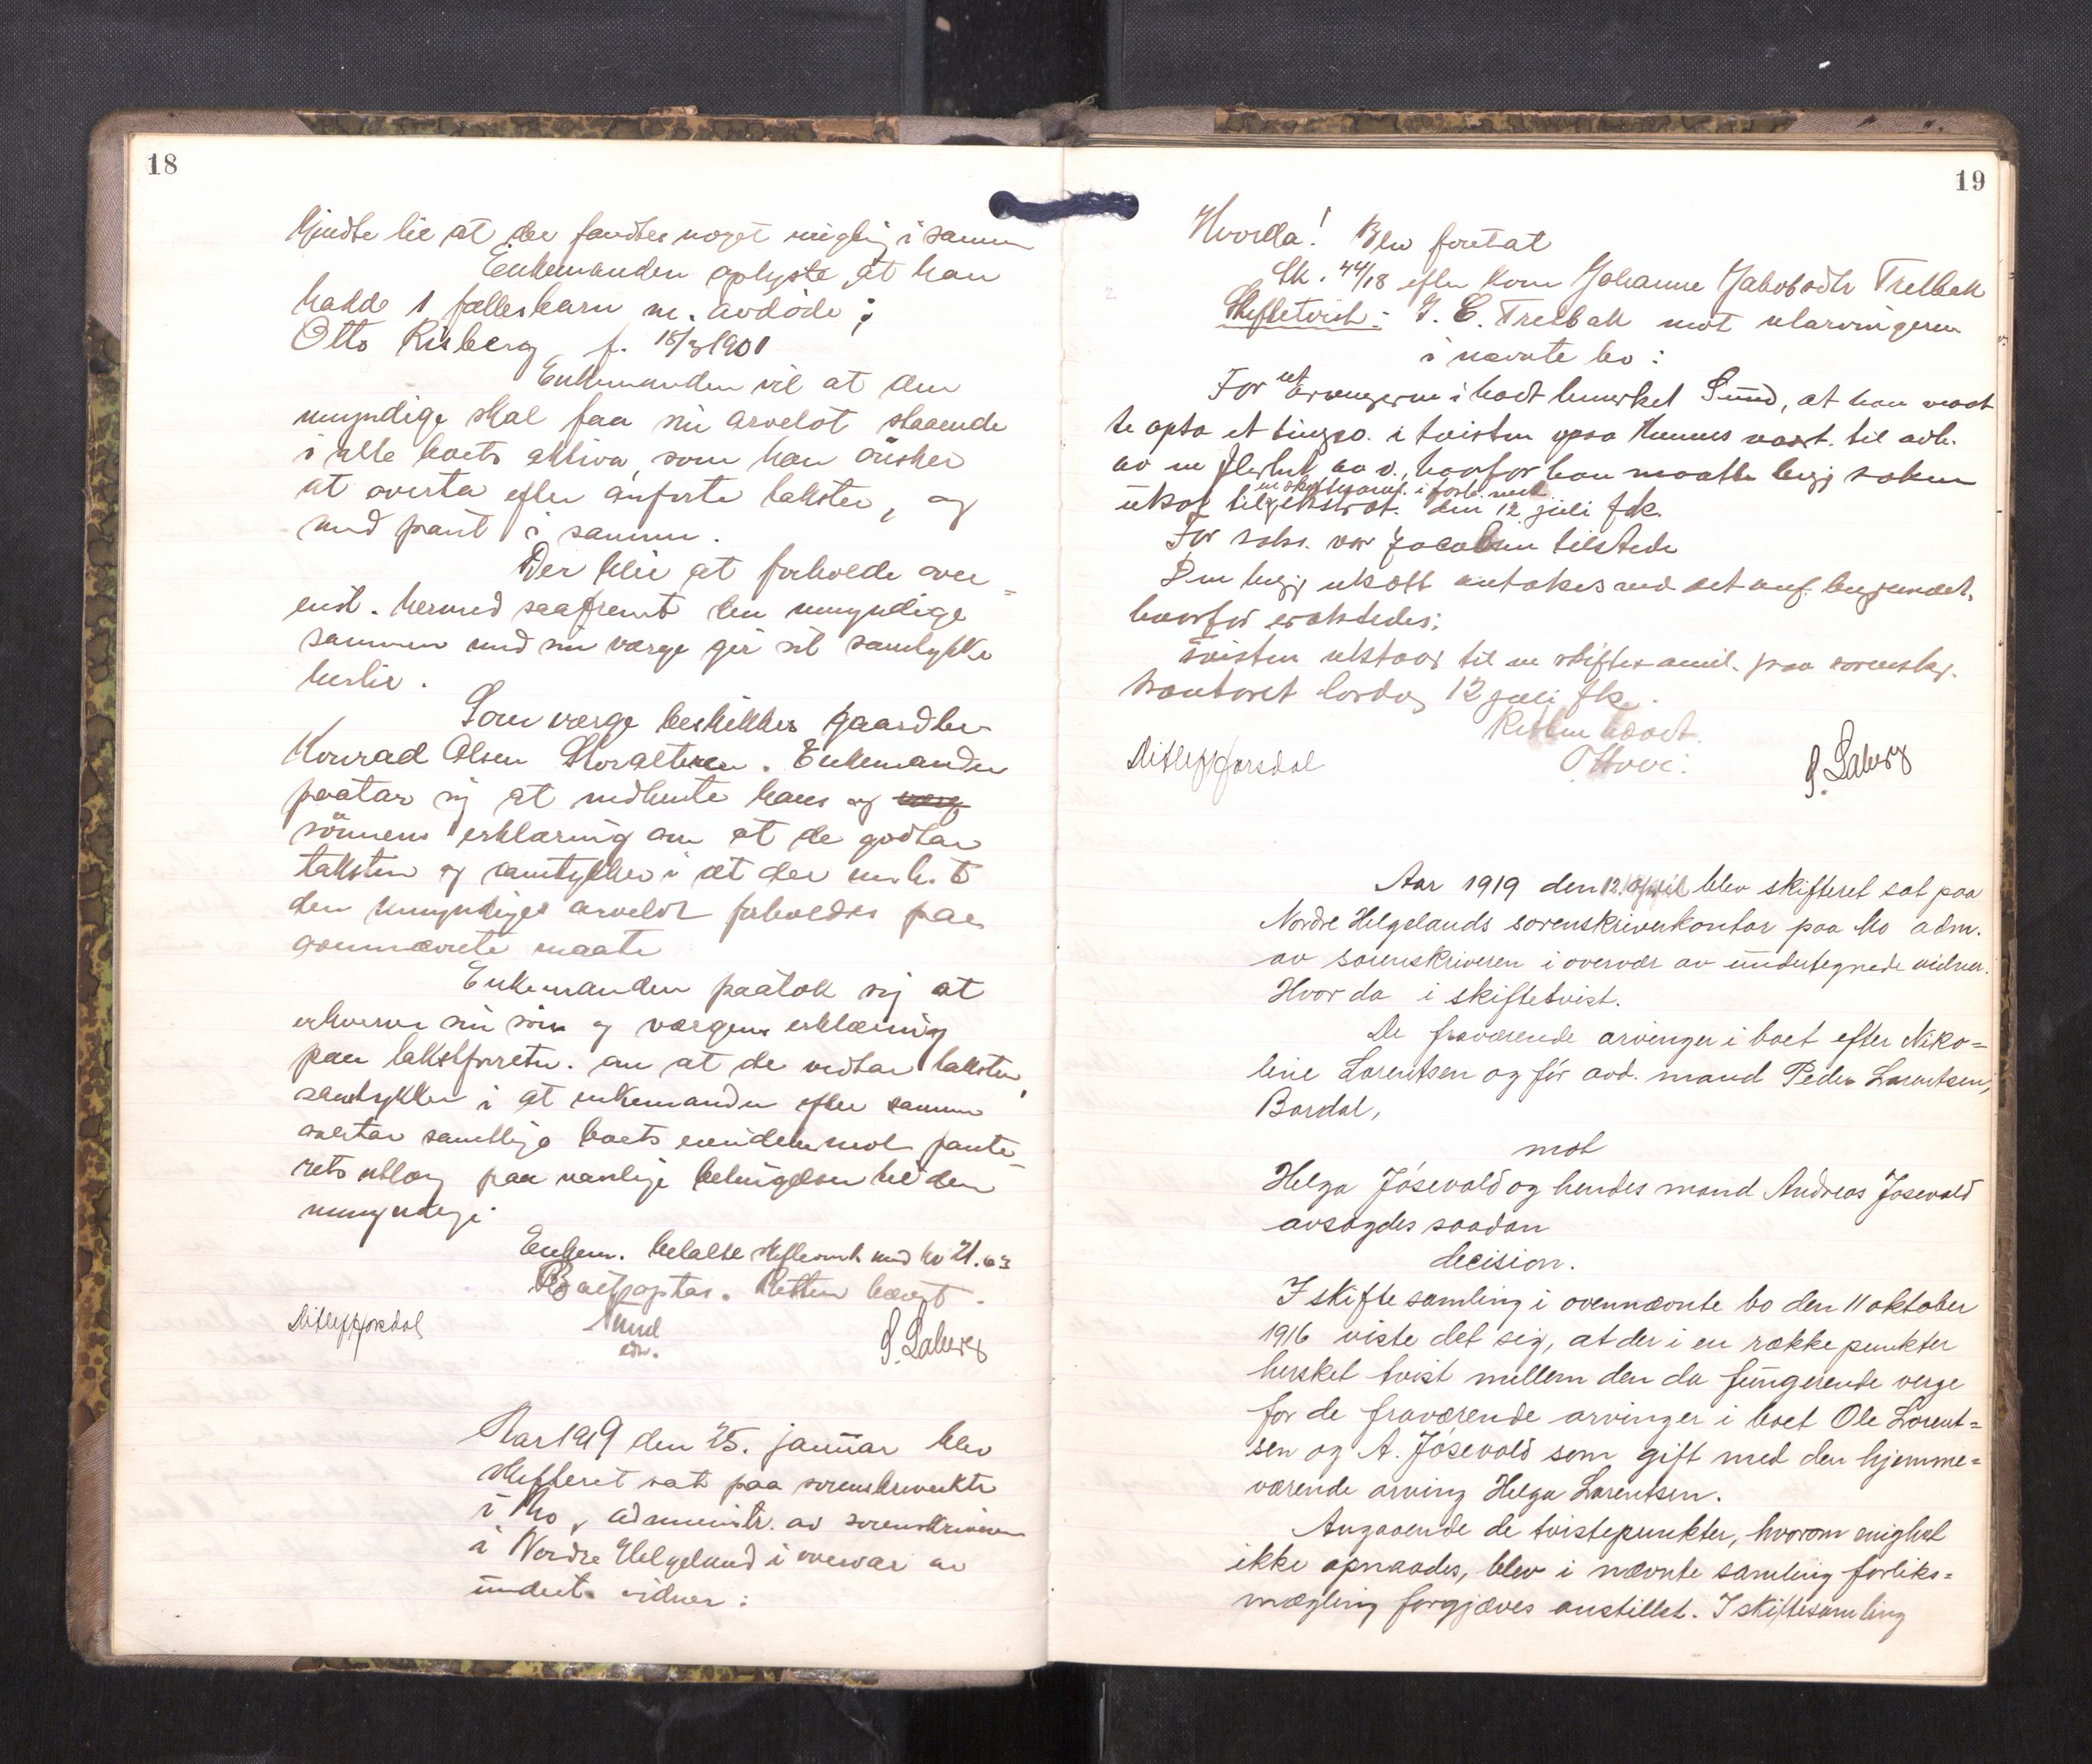 18
at der fandtes noget i samme
Enkemanden oplyste at han
hadde 1 fællesbarn m. avdøde:
Otto Risberg f. 18/3 1901
Enkemanden vil at den
umyndige skal faa sin arvelot staaende
i alle boets aktiva, som han ønsker
at overta efter anførte takster, og
med pant i samme.
Der blir at forholde over=
enst. hermed saafremt den umyndige
sammen med sin værge gir sit samtykke
hertil.
Som værge beskikkes gaardbr.
Konrad Olsen Enkemanden
paatar sig at indhente hans og
sønnens erklæring om at de godtar
taksten og samtykker i at der m.h.t.
den umyndiges arvelot forholdes paa
ovennævnte maate
Enkemanden paatok sig at
erhverve sin søn og værgens erklæring
paa takstforretn. om at de vedtar taksten,
samtykker i at enkemanden efter samme
overtar samtlige boets eiendeler mot pante-
rets utlæg paa vanlige betingelser til den
umyndige.
Enkem. betalte skifteomk. med kr 21.63
Boet optas. Retten hævet.
Sund
edv.
Aar 1919 den 25. januar blev
skifteret sat paa sorenskriverktr
i Mo, administr. av sorenskriveren
i Nordre Helgeland i overvær av
undert. vidner:
19
Hvorda! Blev foretat
Sk. 44/18 efter kone Johanne Jakobsdtr Trælbak
Skiftetvist: J. E. Trælbak mot utarvingerne
i nævnte bo:
For utarvingerne i boet bemerket Sund, at han maat
te opta et tingsv. i tvisten paa til avh.
av hvorfor han maatte begj saken
m skiftesaml. i forb. med
utsat til den 12 juli fk.
For saks. var Jacobsen tilstede
Den begj utsætt
hvorfor eragtedes:
Tvisten utstaar til en skiftesaml. paa sorenskr.
kontoret lørdag 12 juli fk.
Retten hævet.
Aar 1919 den 12. april blev skifteret sat paa
Nordre Helgelands sorenskriverkontor paa Mo adm.
av sorenskriveren i overvær av undertegnede vidner.
Hvor da i skiftetvist.
De fraværende arvinger i boet efter Niko=
line Lorentsen og før avd. mand Peder Lorentsen,
Bardal,
mot
Helga Jósevold og hendes mand Andreas Jósevold
avsagdes saadan
decision.
I skiftesamling i ovennævnte bo den 11 oktober
1916 viste det sig, at der i en række punkter
hersket tvist mellem den da fungerende verge
for de fraværende arvinger i boet Ole Lorent=
sen og A. Jósevold som gift med den hjemme=
værende arving Helga Lorentsen.
Angaaende de tvistepunkter, hvorom enighet
ikke opnaades, blev i nævnte samling forliks=
mægling forgjæves anstillet. I skiftesamling